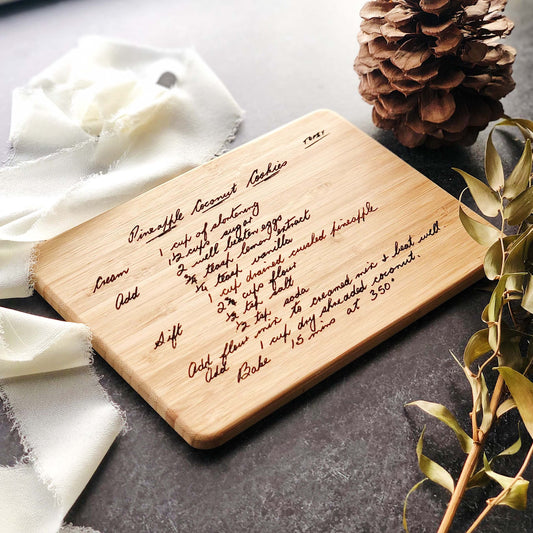 TOPSY
Pineapple Coconut Cookies
Cream 1 cup of shortening
1½ cups sugar
Add 2 well beaten eggs
¾ teasp lemon extract
¼ teasp vanilla
1 cup drained crushed pineapple
Sift 2¾ cups flour
½ tsp salt
½ tsp soda
Add flour mix to creamed mix & beat well
Add 1 cup dry shredded coconut.
Bake 15 mins at 350°